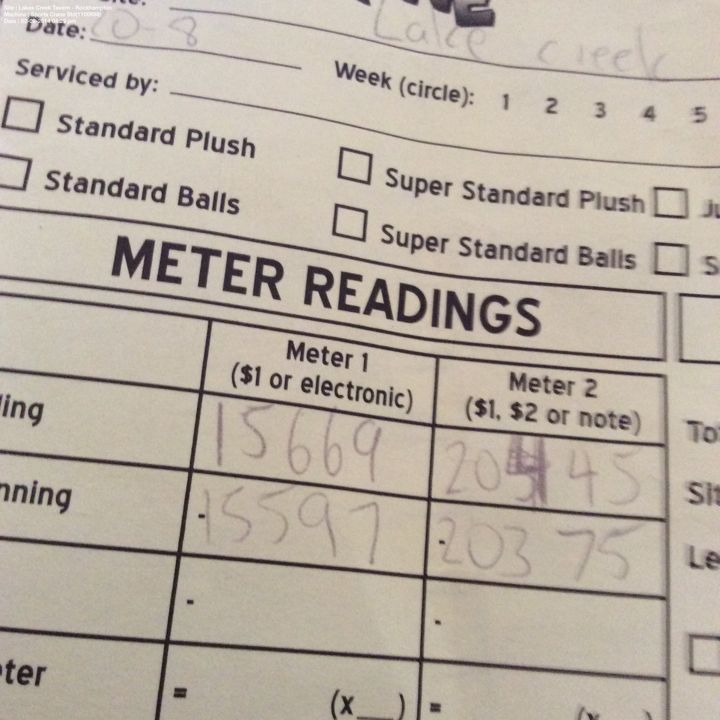 Site : Lakes Creek Tavern - Rockhampton
Lake creek
Date: 20-8
Serviced by:
Week (circle): 1 2 3 4 5
Standard Plush
Super Standard Plush
Standard Balls
Super Standard Balls
METER READINGS
Meter 1
($1 or electronic)
Meter 2
($1, $2 or note)
ling
15669
20445
To
Sit
nning
- 15597
- 20375
Le
-
-
ter
= (x__)
=